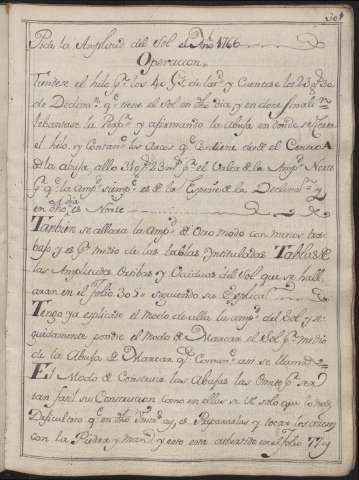 301
Pide la Amplitud del Sol el Año 1766
Operacion.
Tiendese el hilo p.r los 40 g.s de lat.d y Cuentase los 23 g.s 30
de Declina.n q.e tiene el Sol en dho dia, y en donde finalizen
lebantase la Perp.r y afirmando la Abuja en donde se
el hilo, y Contando los Arcos q.e Contiene desde el Centro A
la abuja, allo 31 g.s 23 m.s p.r el Valor de la Amp.d Norte
p.r q.e la Amp.d siempre es de la Especie de la Declina.n y
en dho dia es Norte
Tanbien se allara la Amp.d de Otro modo con menos tra-
bajo, y es p.r medio de las tablas Yntituladas Tablas de
las Amplitudes Ortibas y Occiduas del Sol que se hall-
aran en el folio 305 siguiendo su Explica.n
Tengo ya esplicado el Modo de allar la amp.d del Sol y se-
guidamente pondre el Modo de Marcar el Sol p.r medio
de la Abuja de Marcar q.e Comun.te asi se llama
El Modo de Construir las Abujas las Omito p.r ser
tan facil su Construcion como en ellas se ve solo que lo mas
Dificultoso q.e en dho ay, es Prepararlas y tocar los azeros
con la Piedra y man y esto, esta advertido en el folio 77 y